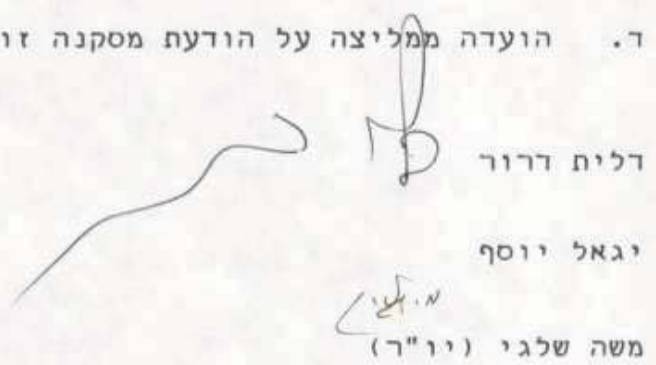 ד. הועדה ממליצה על הודעת מסקנה זו
דלית דרור
יגאל יוסף
משה שלגי (יו"ר)